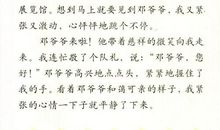 展览馆。想到马上就要见到邓爷爷，我又紧
张又激动，心怦怦地跳个不停。
邓爷爷来啦！他带着慈祥的微笑向我走
来。我连忙敬了个队礼，说：“邓爷爷，您
好！”邓爷爷高兴地点点头，紧紧地握住了
我的手。看着邓爷爷和蔼可亲的样子，我紧
张的心情一下子就平静了下来。